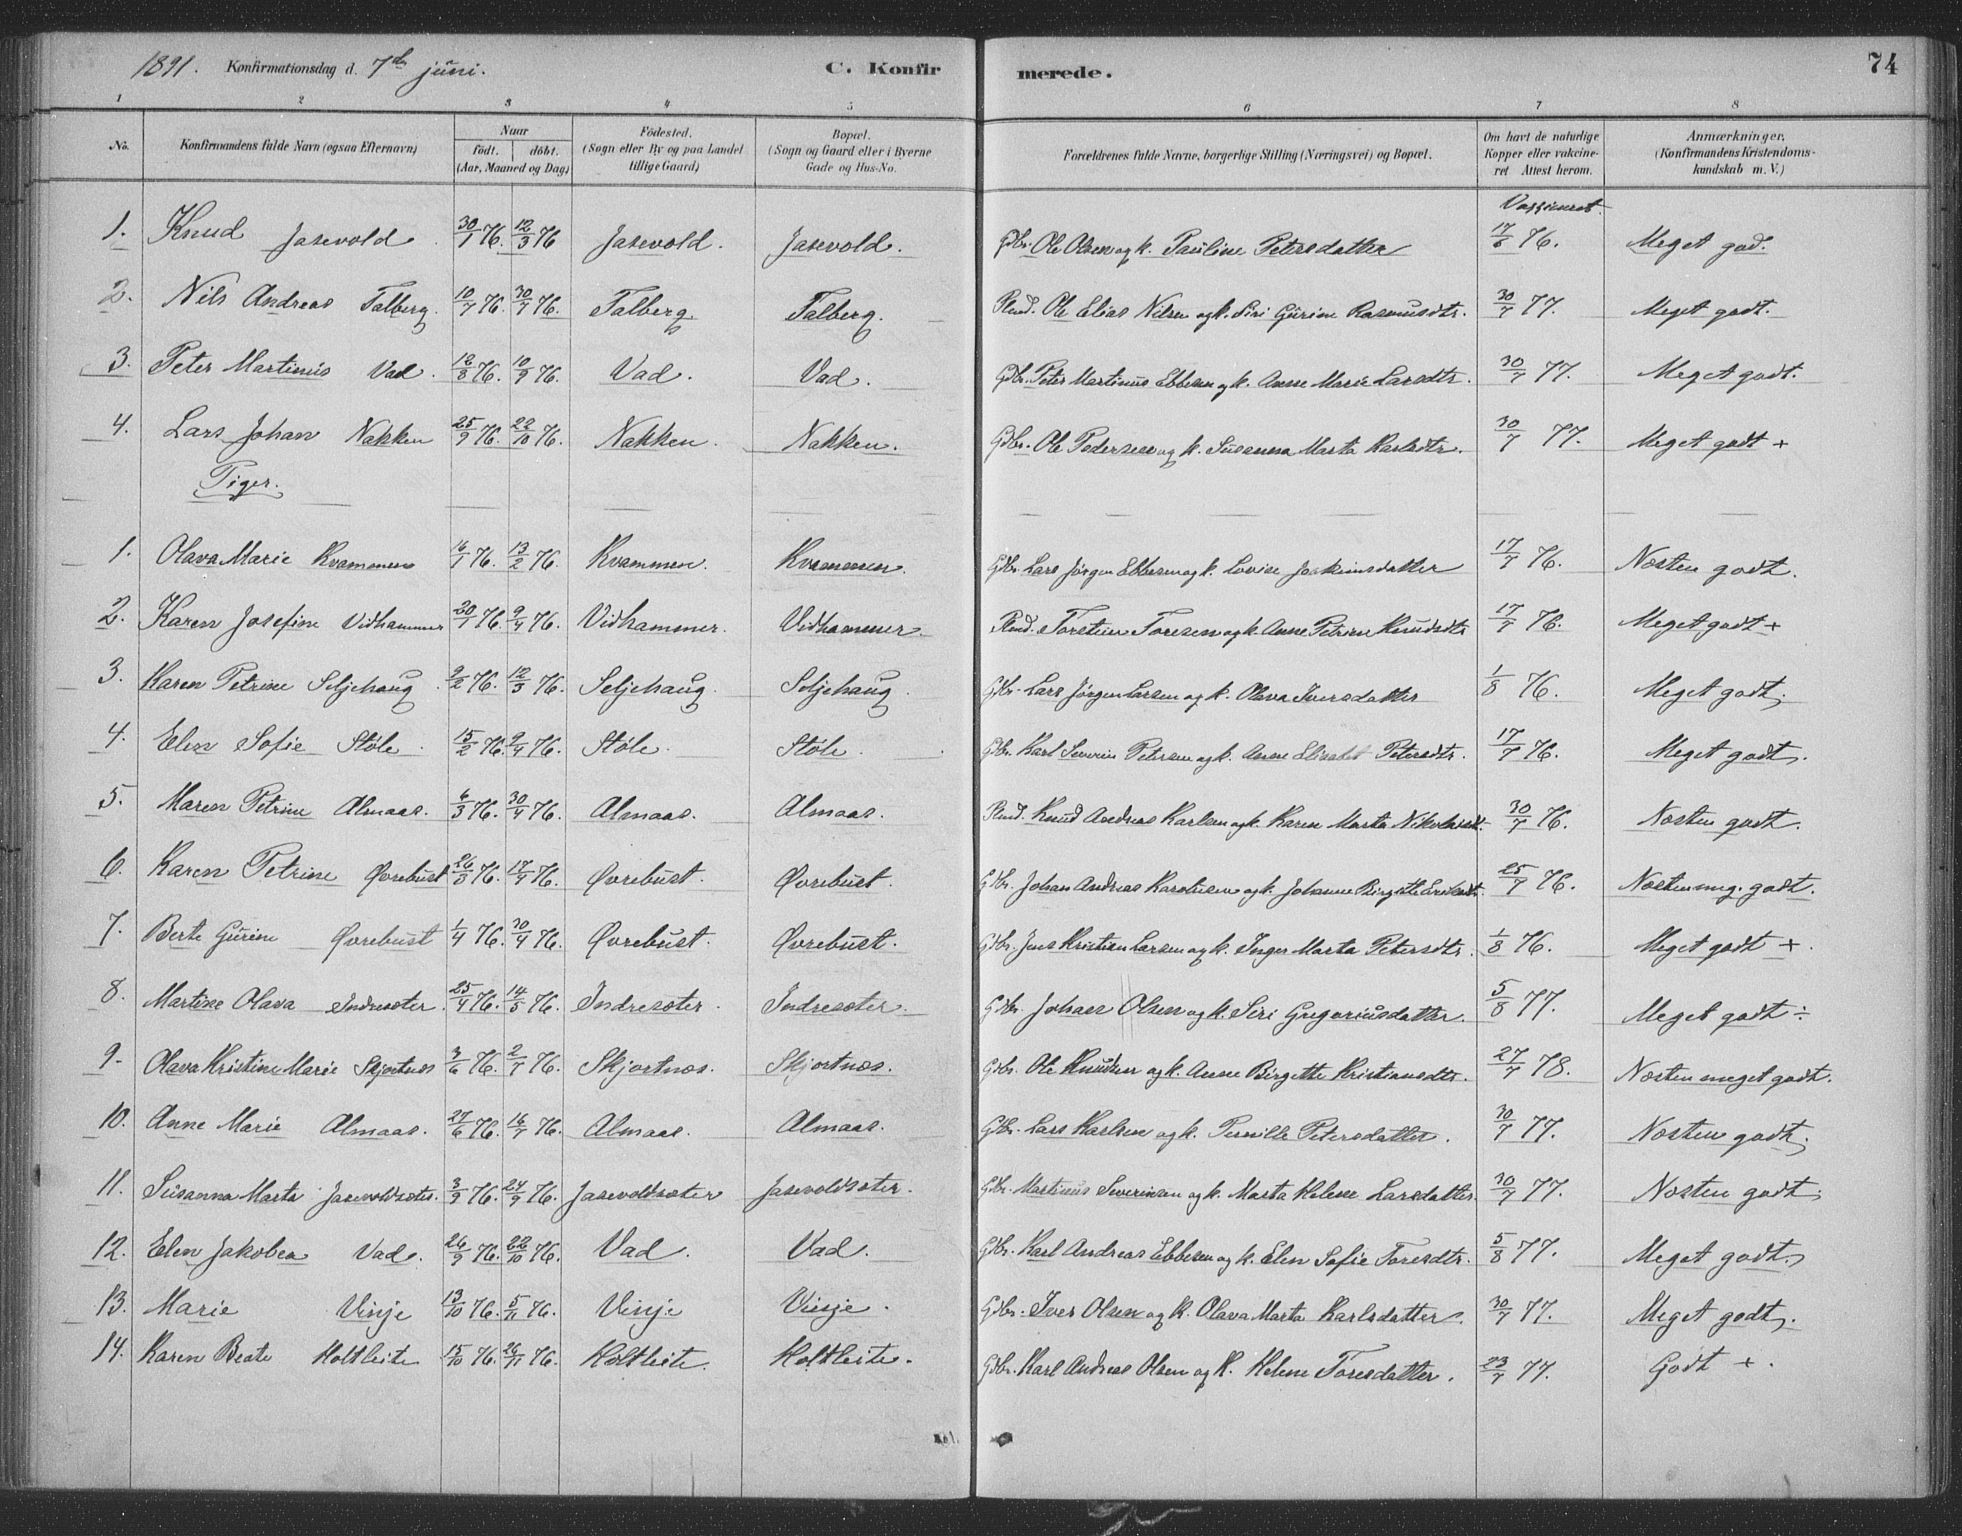 1891. Konfirmationsdag d. 7de juni. C. Konfir merede. 74
1 2 3 4 5 6 7 8
No. Konfirmandens fulde Navn (ogsaa Efternavn) Naar født. døbt. (Aar, Maaned og Dag) Fødested. (Sogn eller By og paa Landet tillige Gaard) Bopæl. (Sogn og Gaard eller i Byerne Gade og Hus-No. Forældrenes fulde Navne, borgerlige Stilling (Næringsvei) og Bopæl. Om havt de naturlige Kopper eller vakcineret Attest herom. Anmærkninger. (Konfirmandens Kristendomskundskab m. V.)
1. Knud Jasevold 30/1 76. 12/3 76 Jasevold. Jasevold. Gdbr. Ole Olsen og k. Pauline Petersdatter 17/8 76. Meget god.
2. Nils Andreas Talberg. 10/7 76. 30/7 76. Talberg. Talberg. Ole Elias Nilsen og k. Siri Gurine Rasmusdtr. 30/7 77. Meget godt.
3. Peter Martinus Vad. 12/8 76. 10/9 76. Vad. Vad. Gdbr. Peter Martinus Ebbesen og k. Anne Marie Larsdtr. 30/7 77. Meget godt.
4. Lars Johan Nakken 25/9 76. 22/10 76. Nakken. Nakken. Gdbr. Ole Pedersen og k. Susanna Marta Karlsdtr. 30/7 77. Meget godt +
Piger.
1. Olava Marie Kvammen 16/1 76. 13/2 76. Kvammen. Kvammen. Gdbr. Lars Jørgen Ebbesen og k. Lovise Joakimsdatter 17/7 76. Næsten godt.
2. Karen Josefine Vidhammer 20/1 76. 9/4 76. Vidhammer. Vidhammer. Torstein Toresen og k. Anne Petrine Knudsdtr 17/7 76. Meget godt +
3. Karen Petrine Seljehaug. 9/2 76. 12/3 76. Seljehaug. Seljehaug. Gdbr. Lars Jørgen Larsen og k. Olava Iversdatter 1/8 76. Meget godt.
4. Elen Sofie Støle. 15/2 76. 9/4 76. Støle. Støle. Gdbr. Karl Severin Petersen og k. Anne Elisabet Petersdtr. 17/7 76. Meget godt.
5. Maren Petrine Almaas. 6/3 76. 30/4 76. Almaas. Almaas. Knud Andreas Karlsen og k. Karen Marta 30/7 76. Næsten godt.
6. Karen Petrine Øvrebust 26/3 76. 17/4 76. Øvrebust. Øvrebust. Gdbr. Johan Andreas og k. Johanne Birgitte 25/7 76. Næsten meg. godt.
7. Berte Gurine Øvrebust 1/4 76. 30/4 76. Øvrebust. Øvrebust. Gdbr. Jens Kristian Larsen og k. Inger Marta Petersdtr. 1/8 76. Meget godt +.
8. Martine Olava Indresæter. 25/4 76. 14/5 76. Indresæter. Indresæter. Gdbr. Johan Olsen og k. Siri Gregoriusdatter. 5/8 77. Meget godt ÷
9. Olava Kristine Marie Skjortnes 3/6 76. 2/7 76. Skjortnæs. Skjortnæs. Gdbr. Ole Knudsen og k. Anne Birgitte Kristiansdtr. 27/7 78. Næsten meget godt.
10. Anne Marie Almaas. 27/6 76. 16/7 76. Almaas. Almaas. Gdbr. Lars Karlsen og k. Pernille Petersdatter. 30/7 77. Næsten godt.
11. Susanna Marta Jasevoldsæter. 3/9 76. 24/9 76. Jasevoldsæter Jasevoldsæter. Gdbr. Martinus Severinsen og k. Marta Helene Larsdatter 30/7 77. Næsten godt.
12. Elen Jakobea Vad. 26/9 76. 22/10 76. Vad. Vad. Gdbr. Karl Andreas Ebbesen og k. Elen Sofie Toresdtr. 5/8 77. Meget godt.
13. Marie Vinje 13/10 76. 5/11 76. Vinje Vinje. Gdbr. Iver Olsen og k. Olava Marta Karlsdatter. 30/7 77. Meget godt.
14. Karen Beate Holtleite 15/10 76. 26/11 76. Holtleite. Holtleite. Gdbr. Karl Andreas Olsen og k. Helene Toresdatter. 23/7 77. Godt +.